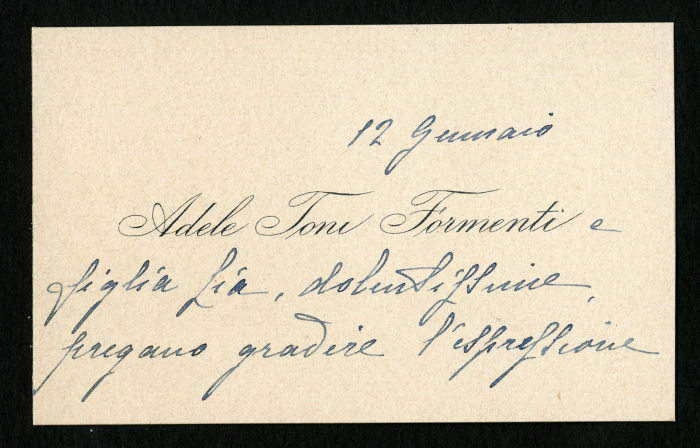 12 Gennaio
Adele Toni Formenti e
figlia Lia, dolentissime,
pregano gradire l'espressione